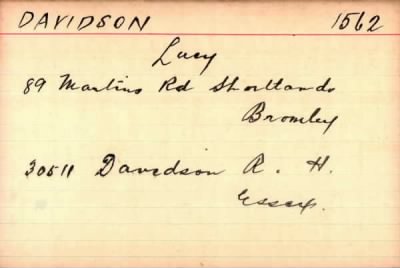 DAVIDSON 1562
Lucy
89 Martins Rd Shortlands
Bromley
30511 Davidson R. H.
Essex.